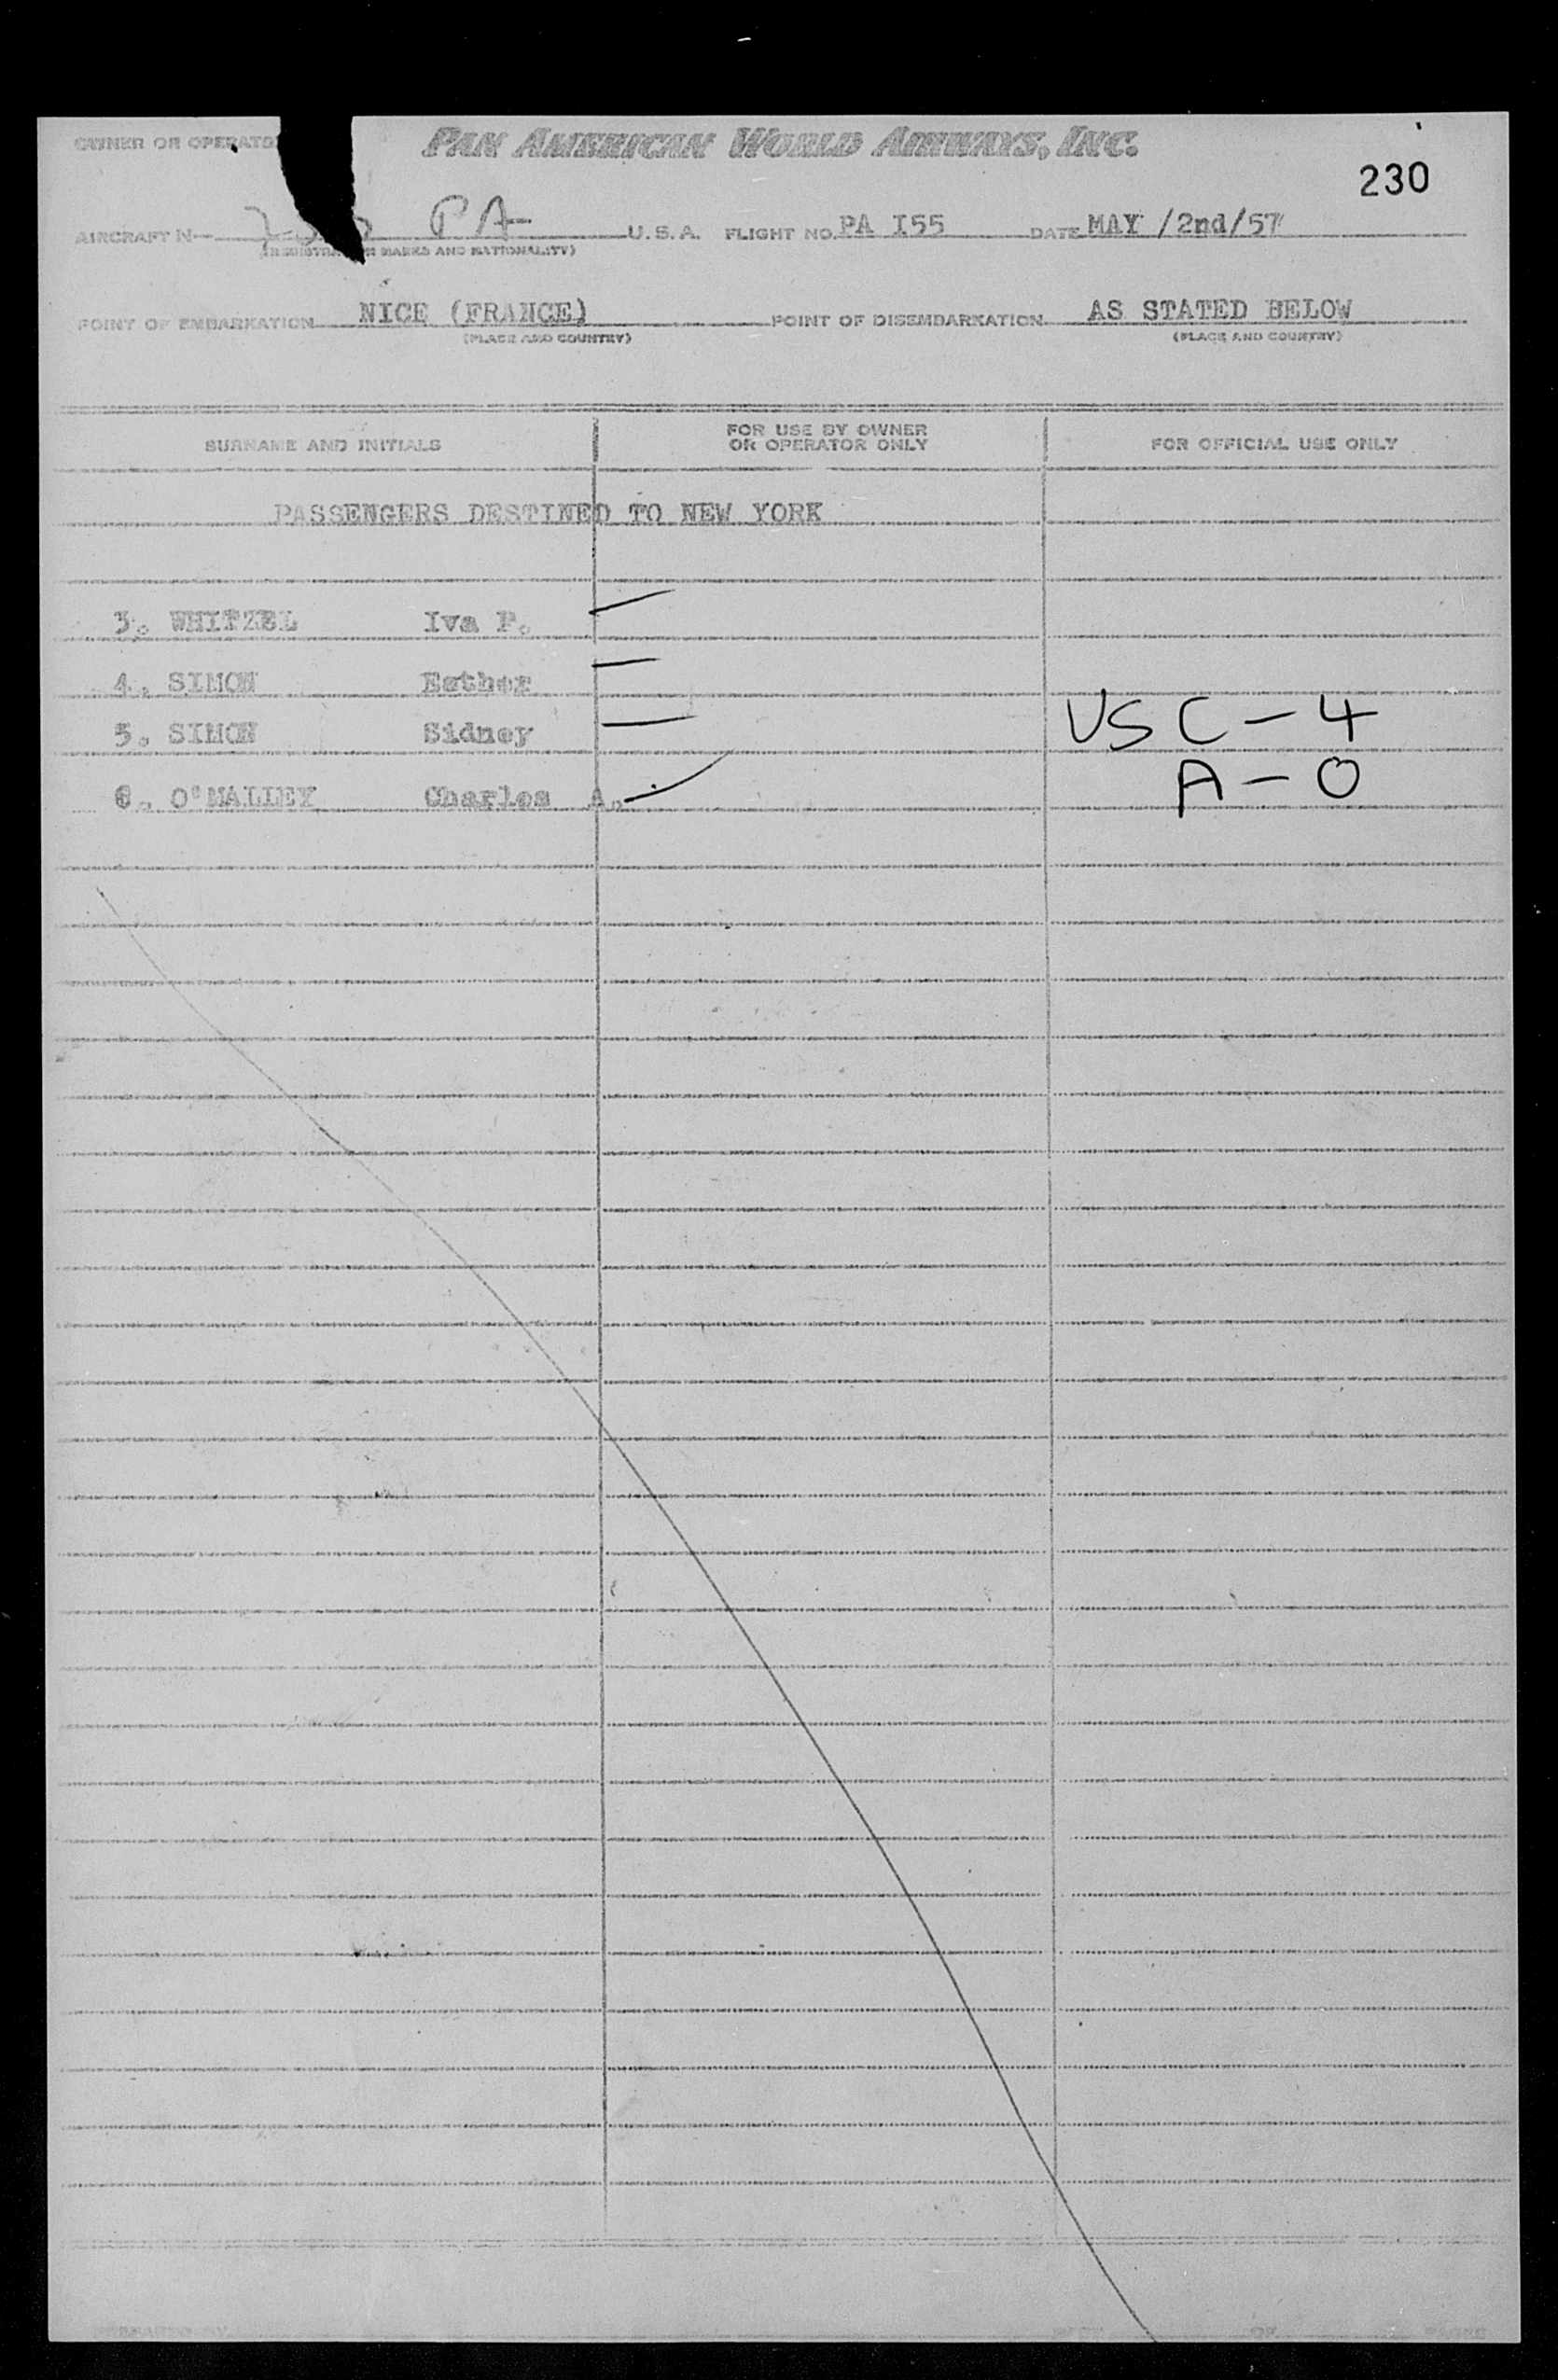 OWNER OR OPERATO
PAN AMERICAN WORLD AIRWAYS, INC.
230
AIRCRAFT N— PA U.S.A. FLIGHT NO. PA I55 DATE MAY /2nd/57
MARKS AND NATIONALITY)
POINT OF EMBARKATION NICE (FRANCE) POINT OF DISEMBARKATION AS STATED BELOW
(PLACE AND COUNTRY) (PLACE AND COUNTRY)
SURNAME AND INITIALS FOR USE BY OWNER OR OPERATOR ONLY FOR OFFICIAL USE ONLY
PASSENGERS DESTINED TO NEW YORK
3. WHITZEL Iva P.
4. SIMON Esther
5. SIMON Sidney
USC — 4
6. O'MALLEY Charles A.
A — 0